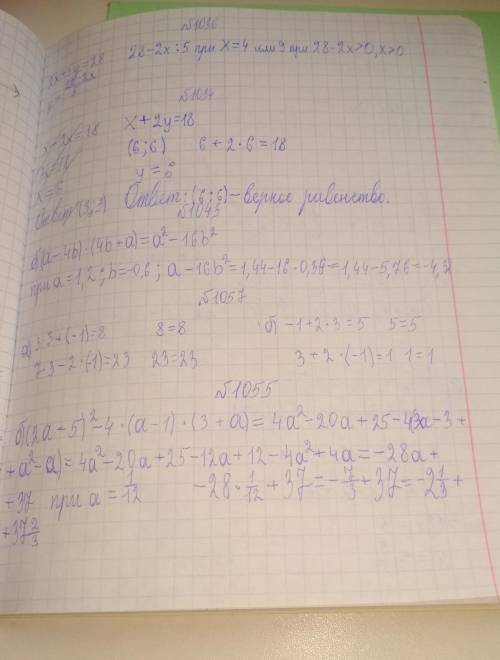 №1036
28-2x:5 при x=4 или 9 при 28-2x>0, x>0
№1034
x+2y=18
(6;6) 6+2·6=18
y=6
Ответ: (6;6)-верное равенство.
x+2x=18
x=6
Ответ (3;3)
№1045
б(a-4b)·(4b+a)=a²-16b²
при a=1,2; b=-0,6; a-16b²=1,44-16·0,36=1,44-5,76=-4,32
№1057
а) 3·3+(-1)=8 8=8 б) -1+2·3=5 5=5
7·3-2·(-1)=23 23=23 3+2·(-1)=1 1=1
№1055
б(2a-5)²-4·(a-1)·(3+a)=4a²-20a+25-4(3a-3+
+a²-a)=4a²-20a+25-12a+12-4a²+4a=-28a+
+37 при a=1/12 -28·1/12+37=-7/3+37=-2 1/3+
+37 2/3